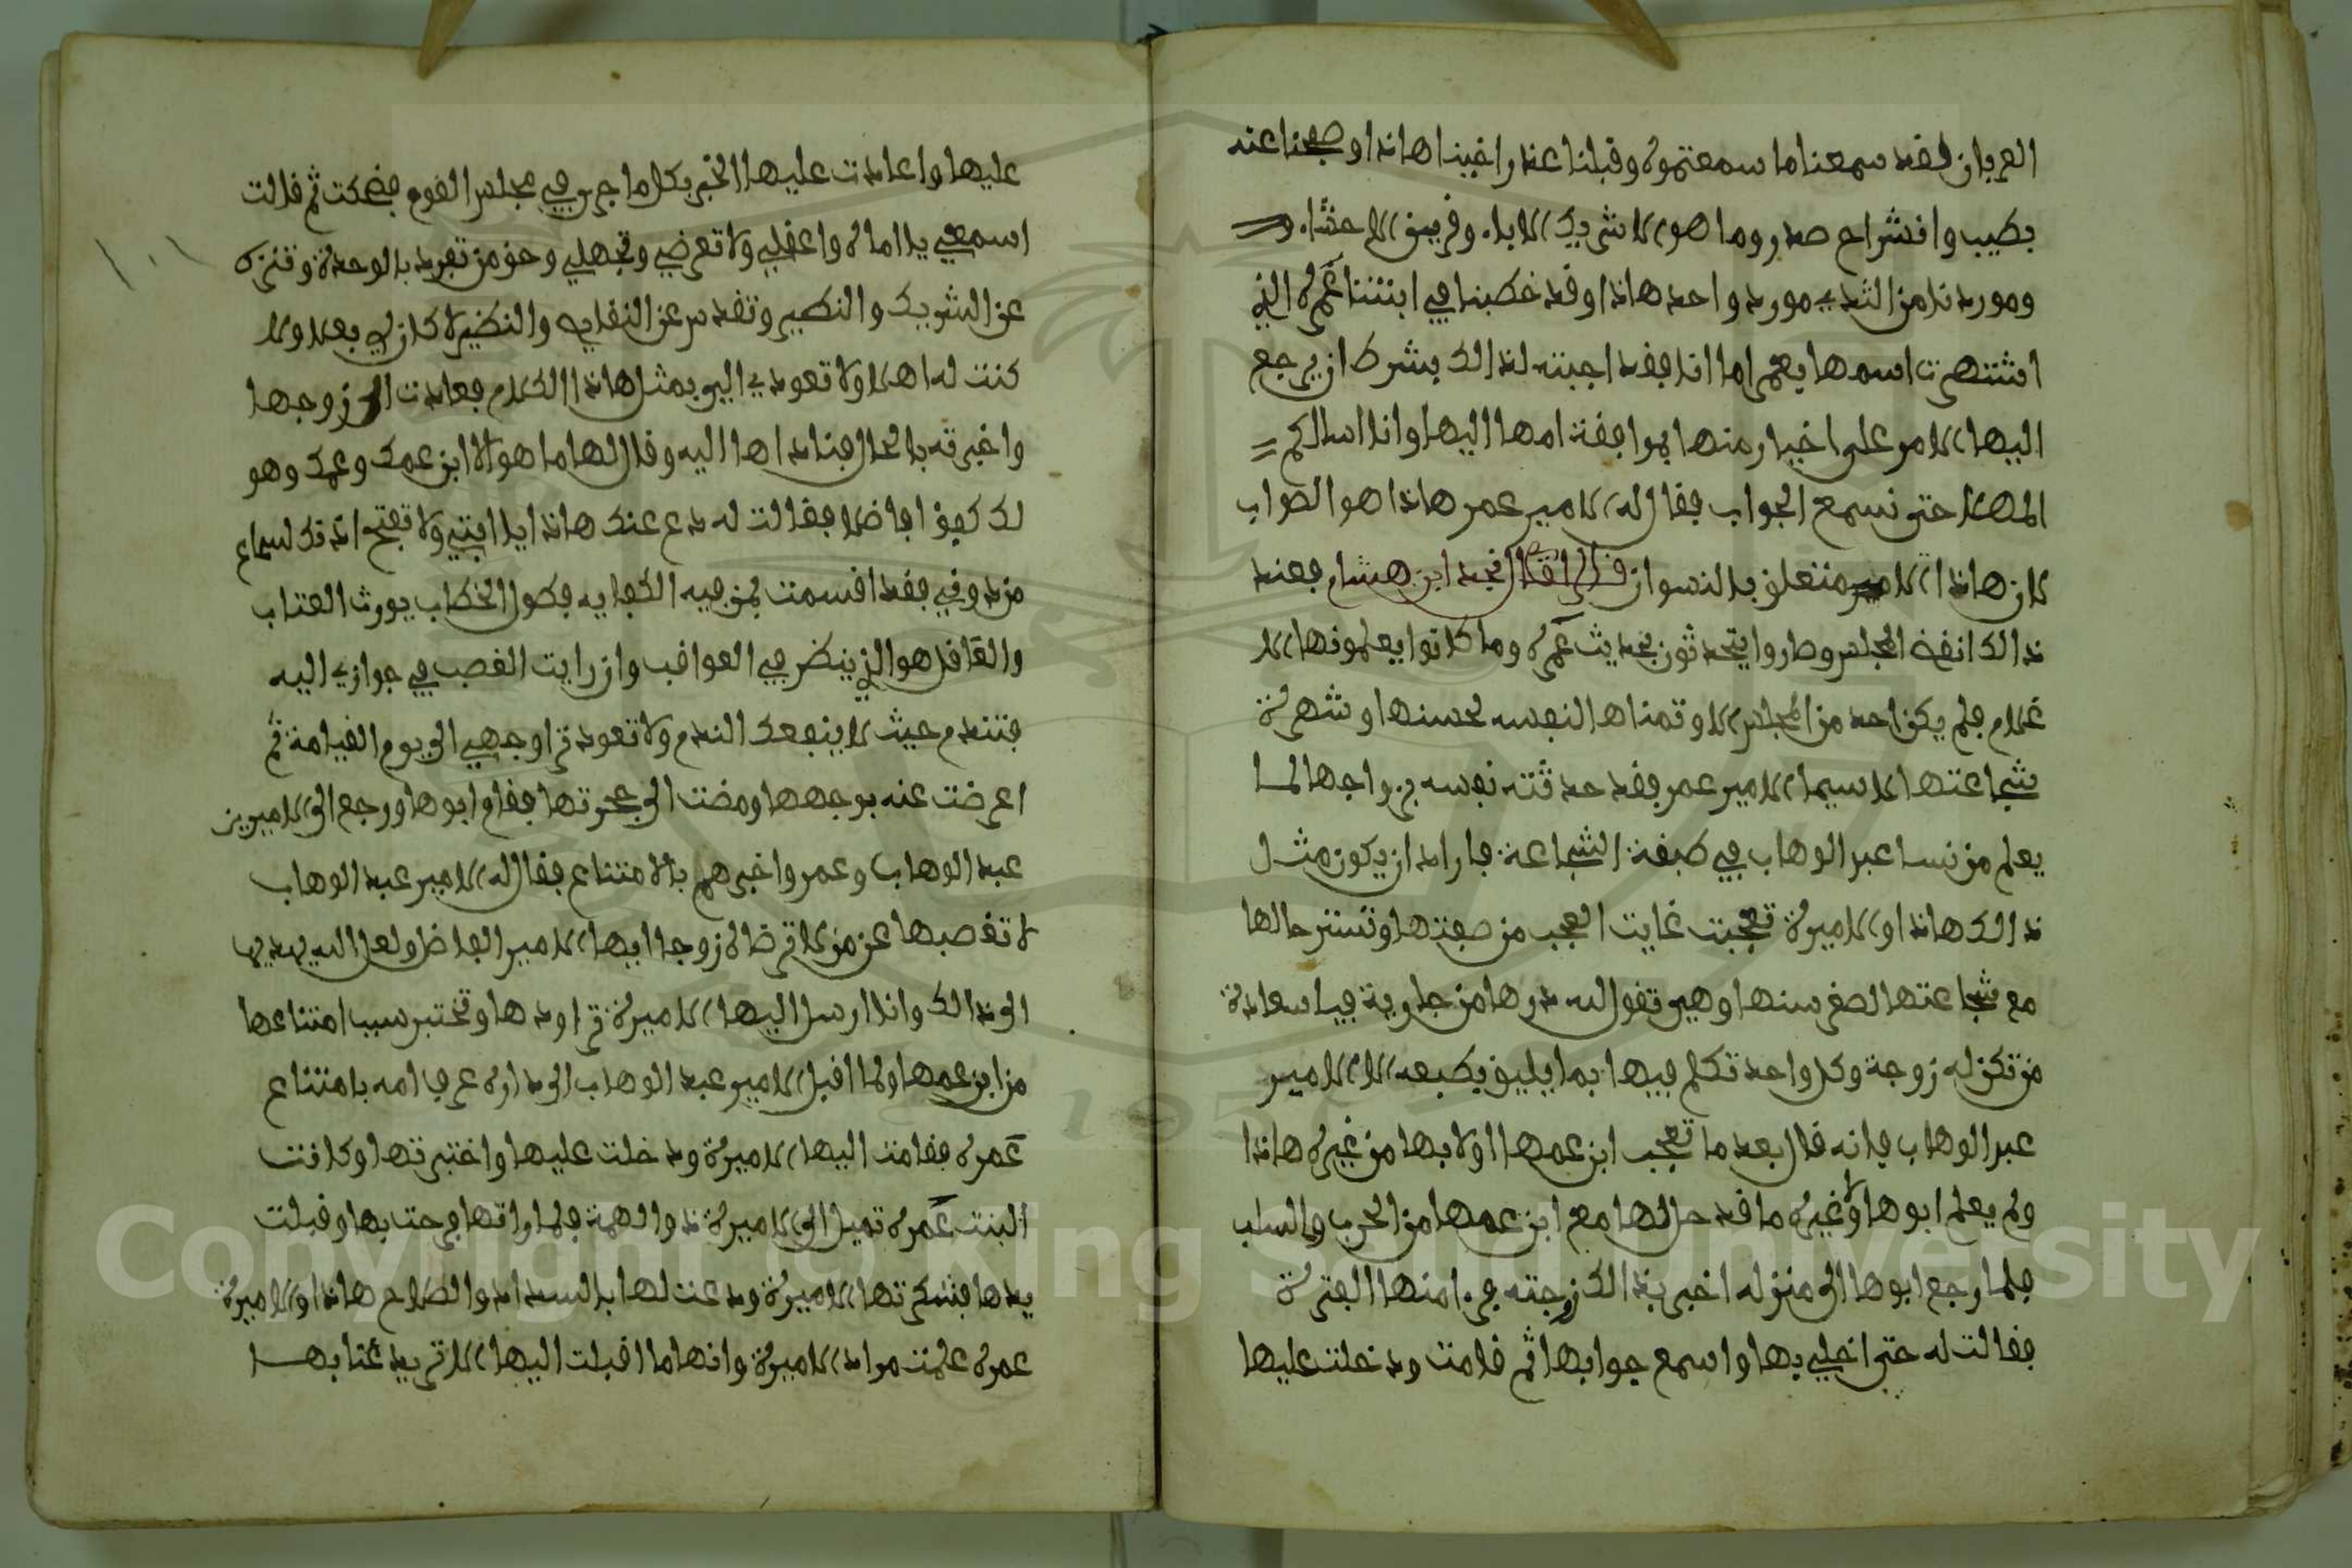 العربان فقد سمعنا ما سمعتموه وقبلنا عذر اخينا هاذا وصفحنا عنه
بطيب وانشراح صدر وما هو الا شريك الابا وقرين الاحشا
وموردنا من الثدي مورد واحد هاذا وقد خطبنا في ابنتنا غمره الذي
اشتهرت اسمها بعمر اما انا فقد اجبته لذالك بشرط ان يرجع
اليها الامر على اخيار منها بموافقة امها اليها وانا اسالكم
المهلا حتى نسمع الجواب فقال له الامير عمر هاذا هو الصواب
لان هاذا الامر متعلق بالنسوان قال نجد ابن هشام فعند
ذالك انفض المجلس وصاروا يتحدثون بحديث غمره وما كانوا يعلمونها الا
غلام فلم يكن احد من المجلس الا وتمناها لنفسه لحسنها وشهرة
شجاعتها لا سيما الامير عمر فقد حدثته نفسه بزواجها لما
يعلم من نسا عبد الوهاب في صفة الشجاعة فاراد ان يكون مثل
ذالك هاذا والاميرة تعجبت غايت العجب من صفتها وتستر حالها
مع شجاعتها لصغر سنها وهي تقول لله درها من جارية فيا سعادة
من تكن له زوجة وكل واحد تكلم فيها بما يليق بطبعه الا الامير
عبد الوهاب فانه قال بعد ما تعجب ابن عمها اولا بها من غيره هاذا
ولم يعلم ابوها ولا غيره ما قد جرا لها مع ابن عمها من الحرب والسلب
فلما رجع ابوها الى منزله اخبر بذالك زوجته
فقالت له حتى اخلي بها واسمع جوابها ثم قامت ودخلت عليها
عليها واعادت عليها الخبر بكل ما جرى في مجلس القوم فضحكت ثم قالت
اسمعي يا اماه واعقلي ولا تعرضي وتجهلي وحق من تفرد بالوحدة وتنزه
عن الشريك والنظير وتقدس عن النقايص والنظير لا كان لي بعلا ولا
كنت له اهلا ولا تعودي الي بمثل هاذا الكلام فعادت الى زوجها
واخبرته بالحال فناداها اليه وقال لها ما هو الا ابن عمك وعمك وهو
لك كفؤا فاضلا فقالت له دع عنك هاذا يا ابتي ولا تفتح اذنك لسماع
مزدوني فقد اقسمت بمن فيه الكفايه فطول الخطاب يورث العتاب
والعاقل هو الذي ينظر في العواقب وان رايت الغصب في جوازي اليه
فتندم حيث لا ينفعك الندم ولا تعود ترا وجهي الى يوم القيامة ثم
اعرضت عنه بوجهها ومضت الى حجرتها فقام ابوها ورجع الى الاميرين
عبد الوهاب وعمر واخبرهم بالامتناع فقال له الامير عبد الوهاب
لا تغصبها عن من لا ترضاه زوجا ايها الامير الفاضل ولعل الله يهديها
الى ذالك وانا ارسل اليها الاميرة تراودها وتختبر سبب امتناعها
من ابن عمها ولما اقبل الامير عبد الوهاب الى داره عرف امه بامتناع
غمره فقامت اليها الاميرة ودخلت عليها واختبرتها وكانت
البنت غمره تميل الى الاميرة ذوالهمة فلما راتها فرحت بها وقبلت
يدها فشكرتها الاميرة ودعت لها بالسداد والصلاح هاذا والاميرة
غمره علمت مراد الاميرة وانها ما اقبلت اليها الا تريد عتابها
١٠١
Copyright © King Saud University
1957